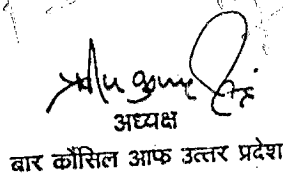 अध्यक्ष
बार कौंसिल आफ उत्तर प्रदेश